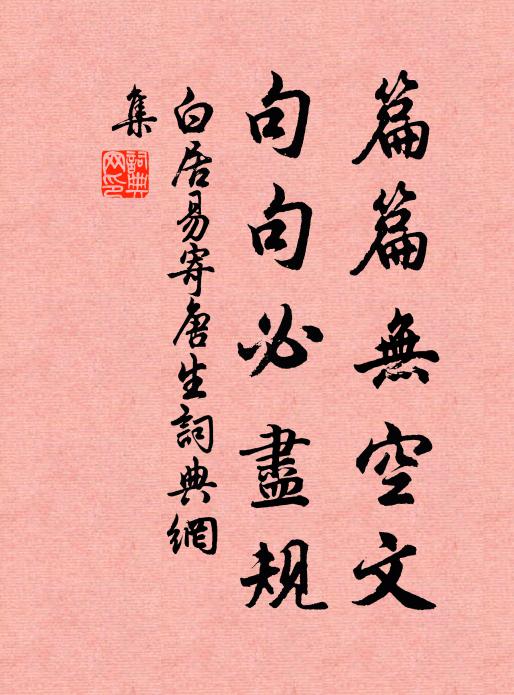 篇篇無空文
句句必盡規
白居易寄唐生詞典網
集
詞典
网印